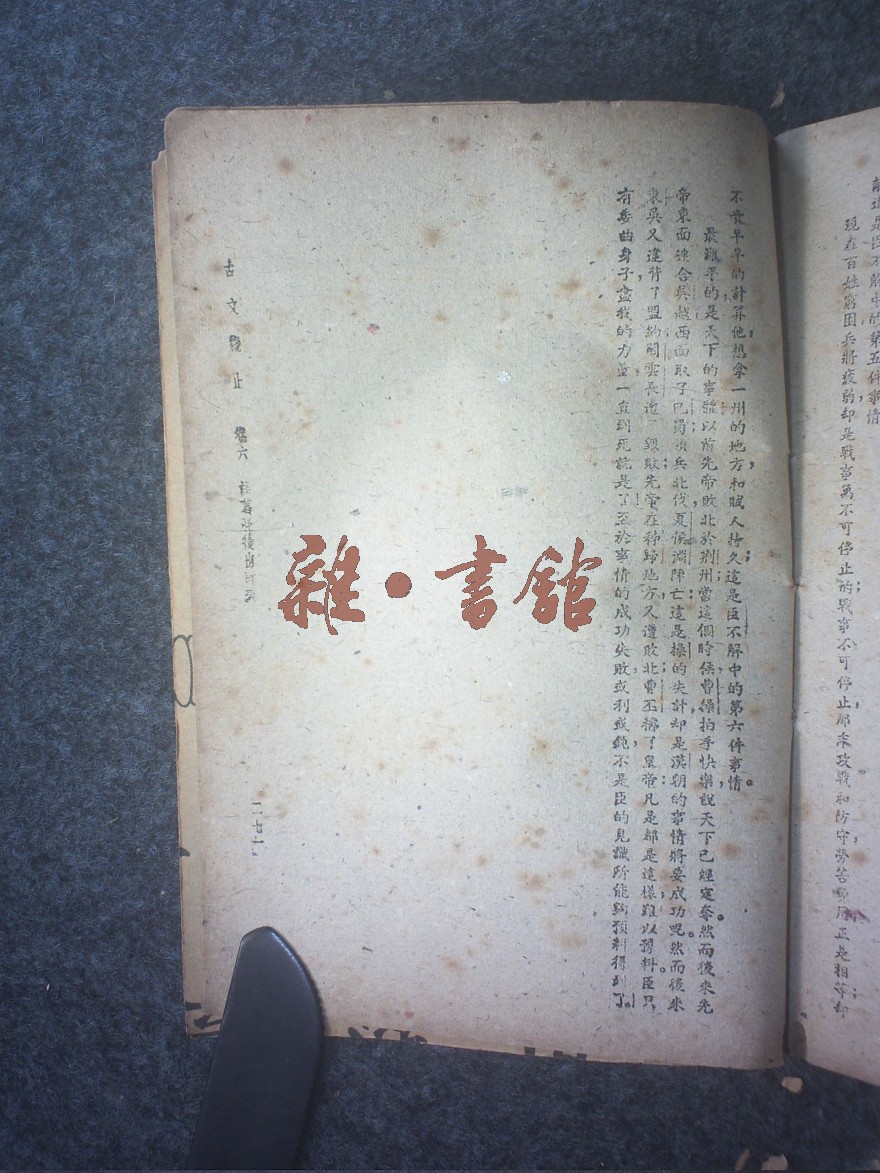 前這是臣不解中的第五件事情
現在百姓窮困兵將疲弱却是戰事萬不可停止的戰事不可停止那末攻戰和防守勞苦費用正是相等却
不肯早早的計算他想拿一州的地方和賊人持久這是臣不解中的第六件事情。
最難平的是天下的事體以前先帝敗北於荆州當這個時候曹操拍手快樂說天下已經定奈然而後來先
帝東面連合吳越西面取了巴蜀領兵北伐夏侯淵陣亡這是操的失計却是漢朝的事情將要成功呢然而後來
東吳又違背了盟約關雲長遭毀敗先帝在秭歸地方又遭敗北曹丕稱了皇帝凡是都是這樣難以豫料臣只
有委曲身子盡我的力量一直到死就是了至於事情的成功失敗或利或鈍不是臣的見識所能夠預料得到了
古文觀止 卷六 後出師表
二七
雜·書館